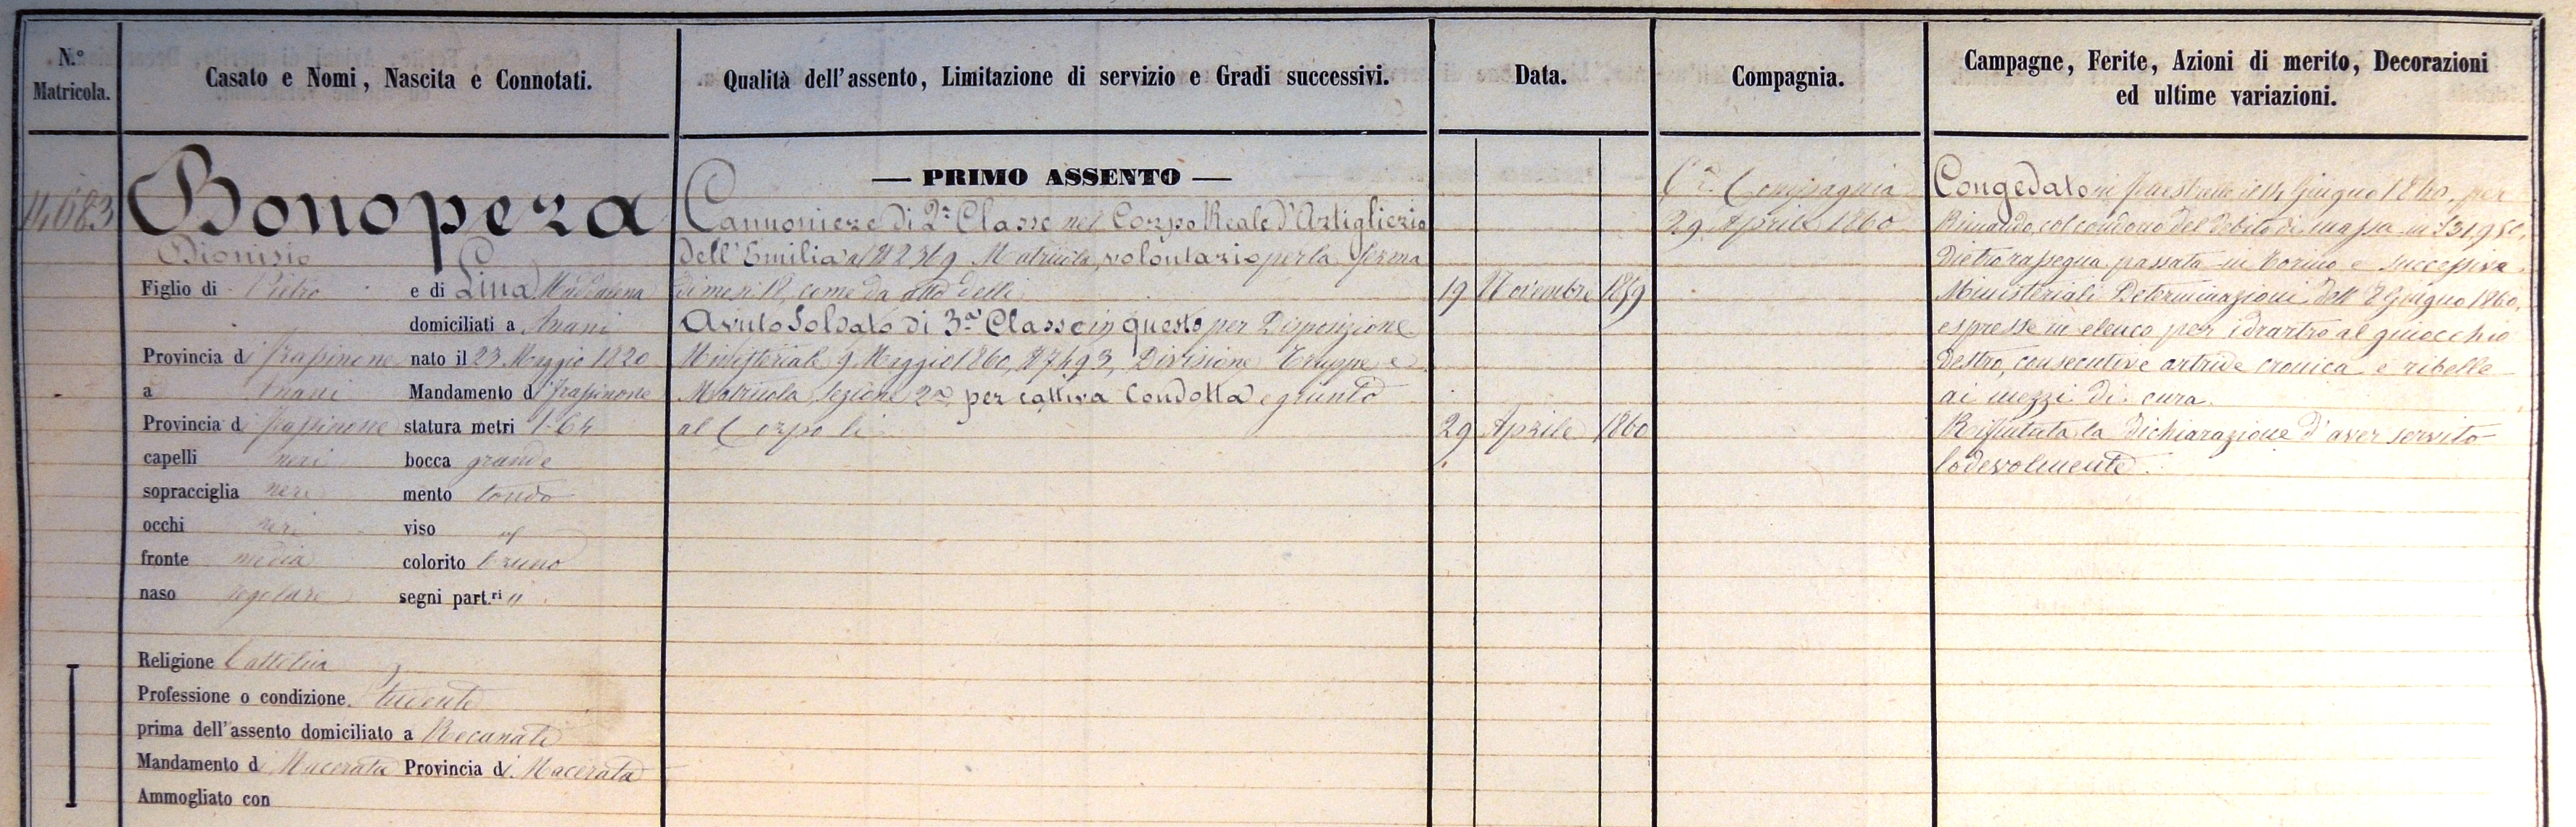 N.º Matricola.
Casato e Nomi, Nascita e Connotati.
Qualità dell'assento, Limitazione di servizio e Gradi successivi.
Data.
Compagnia.
Campagne, Ferite, Azioni di merito, Decorazioni
ed ultime variazioni.
14683
Bonopera
Dionisio
Figlio di Pietro e di Lina Maddalena
domiciliati a Anani
Provincia di Frassinone nato il 23 Maggio 1820
a Anani Mandamento di Frassinone
Provincia di Frassinone statura metri 1.64
capelli neri bocca grande
sopracciglia neri mento tondo
occhi neri viso
fronte media colorito bruno
naso regolare segni part.ri "
Religione Cattolica
Professione o condizione Studente
prima dell'assento domiciliato a Recanati
Mandamento di Macerata Provincia di Macerata
Ammogliato con
— PRIMO ASSENTO —
Cannoniere di 2ª Classe nel Corpo Reale d'Artiglieria
dell'Emilia al Nº 2369 Matricola, volontario per la ferma
di mesi 18, come da atto delli 19 Novembre 1859
Avuto Soldato di 3ª Classe in questo per Disposizione
Ministeriale 9 Maggio 1860, Nº 7493, Divisione Truppe e
Matricola, Sezione 2ª, per cattiva Condotta e giunto
al Corpo li 29 Aprile 1860
Compagnia
29 Aprile 1860
Congedato in Fenestrelle il 14 Giugno 1860, per
Rimando, col condono del debito di massa in
Dietro rassegna passata in Torino e successiva
Ministeriale Determinazione dell' 8 Giugno 1860,
espresse in elenco per idrartro al ginocchio
destro, consecutive artride cronica e ribelle
ai mezzi di cura.
Rifiutata la dichiarazione d'aver servito
lodevolmente.